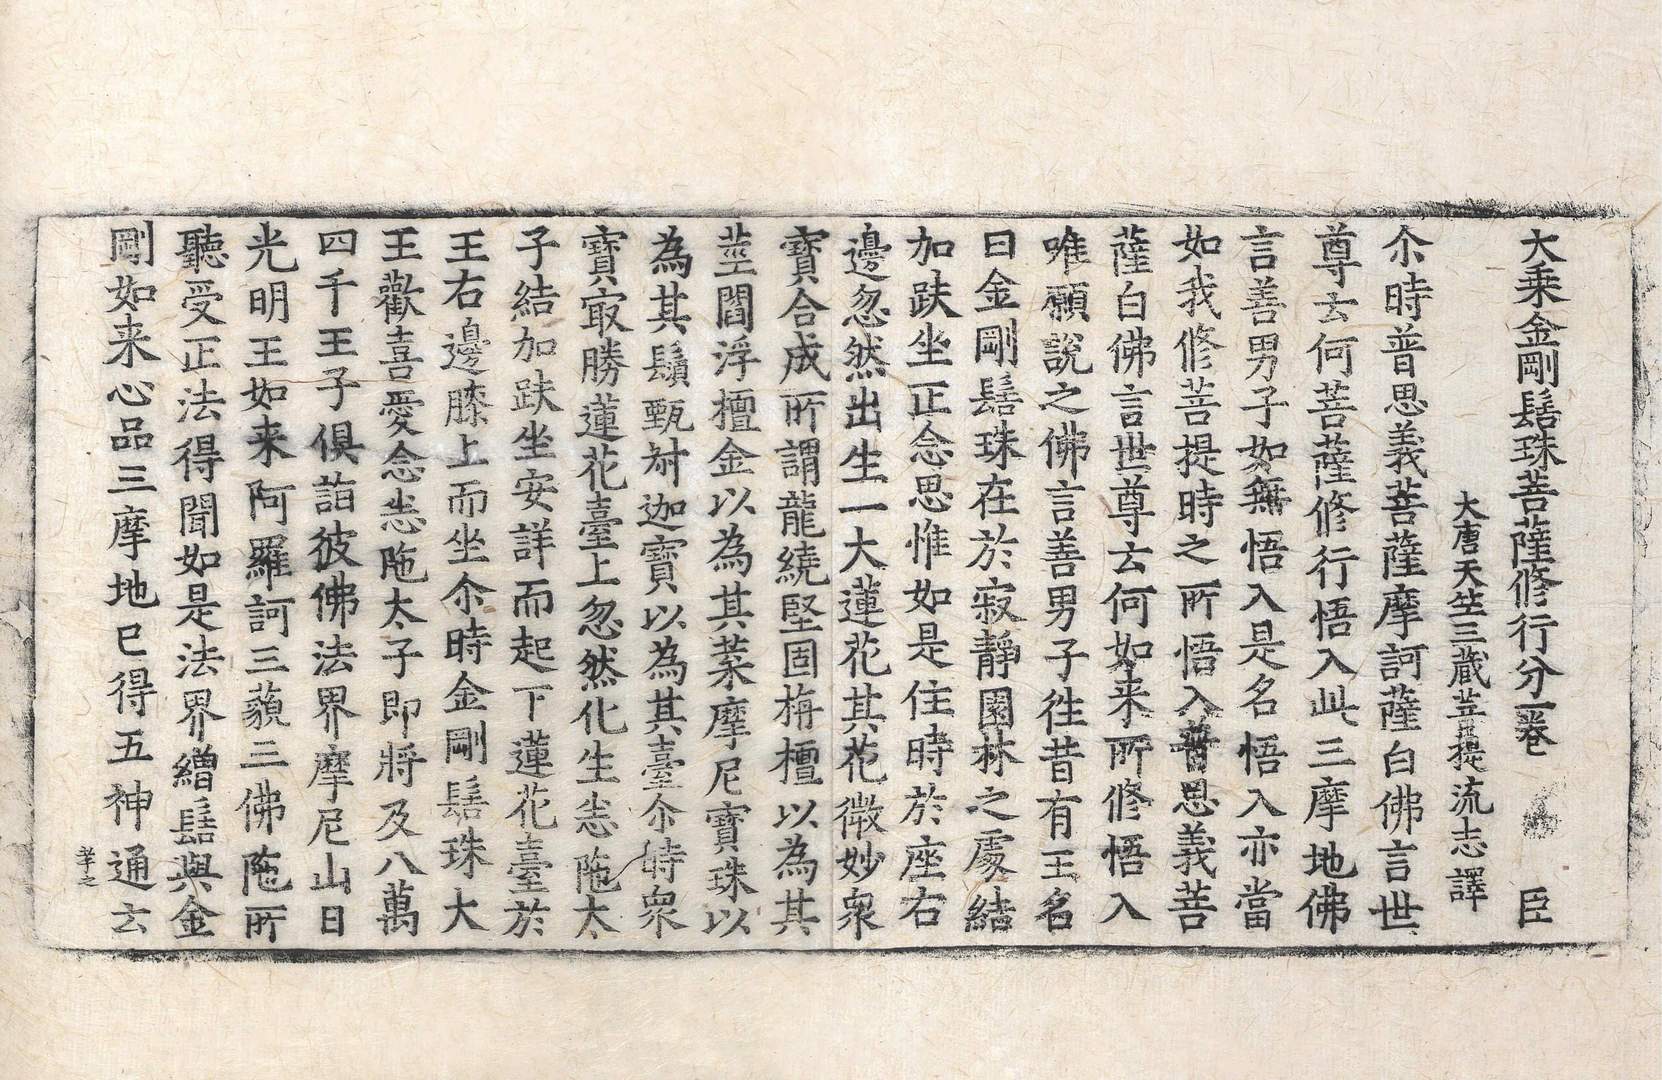 大乗金剛髻珠菩薩修行分一卷 臣
大唐天竺三蔵菩提流志譯
尒時普思義菩薩摩訶薩白佛言世
尊云何菩薩修行悟入此三摩地佛
言善男子如無悟入是名悟入亦當
如我修菩提時之所悟入普思義菩
薩白佛言世尊云何如来所修悟入
唯願說之佛言善男子徃昔有王名
曰金剛髻珠在於寂靜園林之處結
加趺坐正念思惟如是住時於座右
邊忽然出生一大蓮花其花微妙衆
寶合成所謂龍繞堅固栴檀以為其
莖閻浮檀金以為其葉摩尼寶珠以
為其鬚甄叔迦寶以為其臺尒時衆
寶冣勝蓮花臺上忽然化生恙陁太
子結加趺坐安詳而起下蓮花臺於
王右邊膝上而坐尒時金剛髻珠大
王歡喜愛念恙陁太子即將及八萬
四千王子俱詣彼佛法界摩尼山日
光明王如来阿羅訶三藐三佛陁所
聽受正法得聞如是法界繒髻與金
剛如来心品三摩地已得五神通云
孝之